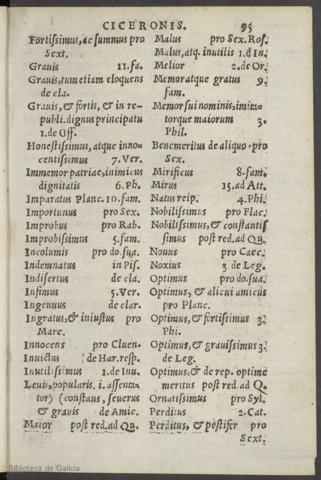 CICERONIS. 95
Fortissimus, ac summus pro
Sext.
Grauis 11.fa.
Grauis, tum etiam eloquens
de cla.
Grauis, & fortis, & in re-
publi. dignus principatu
1.de Off.
Honestissimus, atque inno-
centissimus 7.Ver.
Immemor patriae, inimicus
dignitatis 6.Ph.
Imparatus Planc.10.fam.
Importunus pro Sex.
Improbus pro Rab.
Improbissimus 5.fam.
Incolumis pro do.sua.
Indemnatus in Pis.
Indisertus de cla.
Infimus 5.Ver.
Ingenuus de clar.
Ingratus, & iniustus pro
Marc.
Innocens pro Cluen.
Inuictus de Har.resp.
Inutilissimus 1.de Inu.
Leuis, popularis. i. assenta-
tor) (constaus, seuerus
& grauis de Amic.
Maior post red.ad Qu.
Malus pro Sex.Ros.
Malus, atq. inutilis 1.d In.
Melior 2.de Or.
Memor atque gratus 9.
fam.
Memor sui nominis, imita-
torque maiorum 3.
Phil.
Benemeritus de aliquo pro
Sex.
Mirificus 8.fam.
Mirus 15.ad Att.
Natus reip. 4.Phi.
Nobilissimus pro Flac.
Nobilissimus, & constantis
simus post red.ad Qu.
Nouus pro Caec.
Noxius 3 de Leg.
Optimus pro do.sua.
Optimus, & alicui amicus
pro Planc.
Optimus, & fortissimus 3.
Phi.
Optimus, & grauissimus 3.
de Leg.
Optimus, & de rep. optime
meritus post red.ad Q.
Ornatissimus pro Syl.
Perditus 2.Cat.
Perditus, & pestifer pro
Sext.
Biblioteca de Galicia